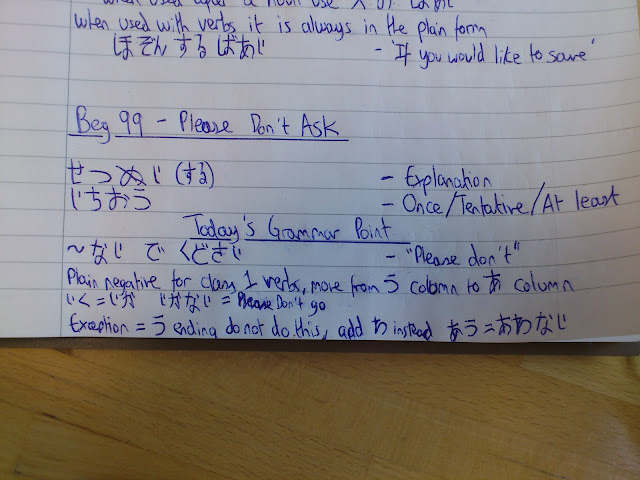 when used after a noun use
when used with verbs it is always in the plain form
ほぞん する ばあい - 'If you would like to save'
Beg 99 - Please Don't Ask
せつめい (する) - Explanation
いちおう - Once/Tentative/At least
Today's Grammar Point
~ない で ください - "Please don't"
Plain negative for class 1 verbs, move from う column to あ column
いく = いか いかない = Please Don't go
Exception = う ending do not do this, add わ instead あう = あわない